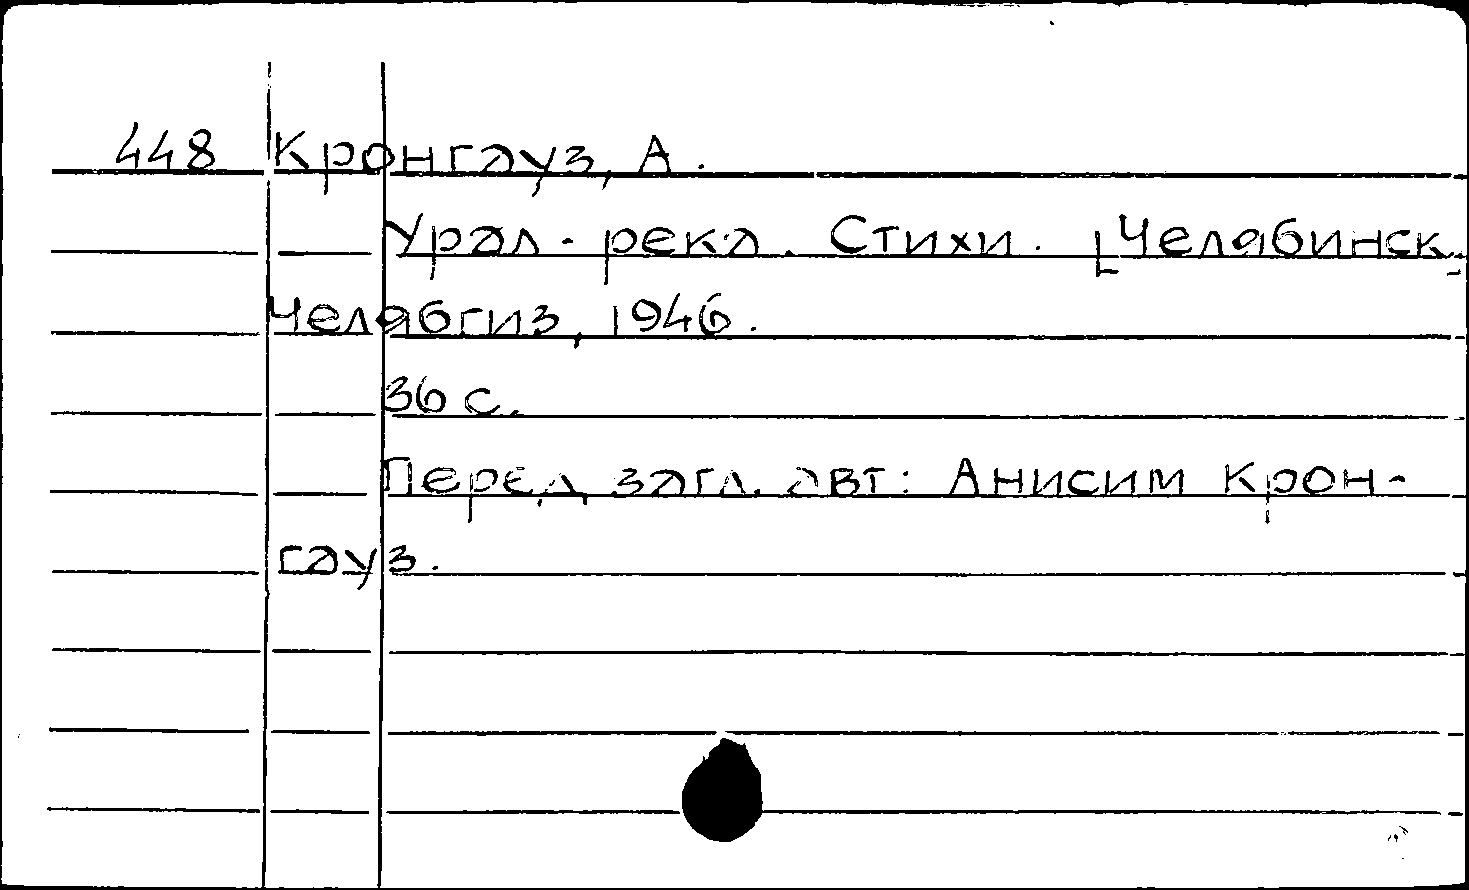 448 Кронгауз, А.
Урал-река. Стихи. [Челябинск],
Челябгиз, 1946.
36 с.
Перед загл. авт: Анисим Крон-
гауз.